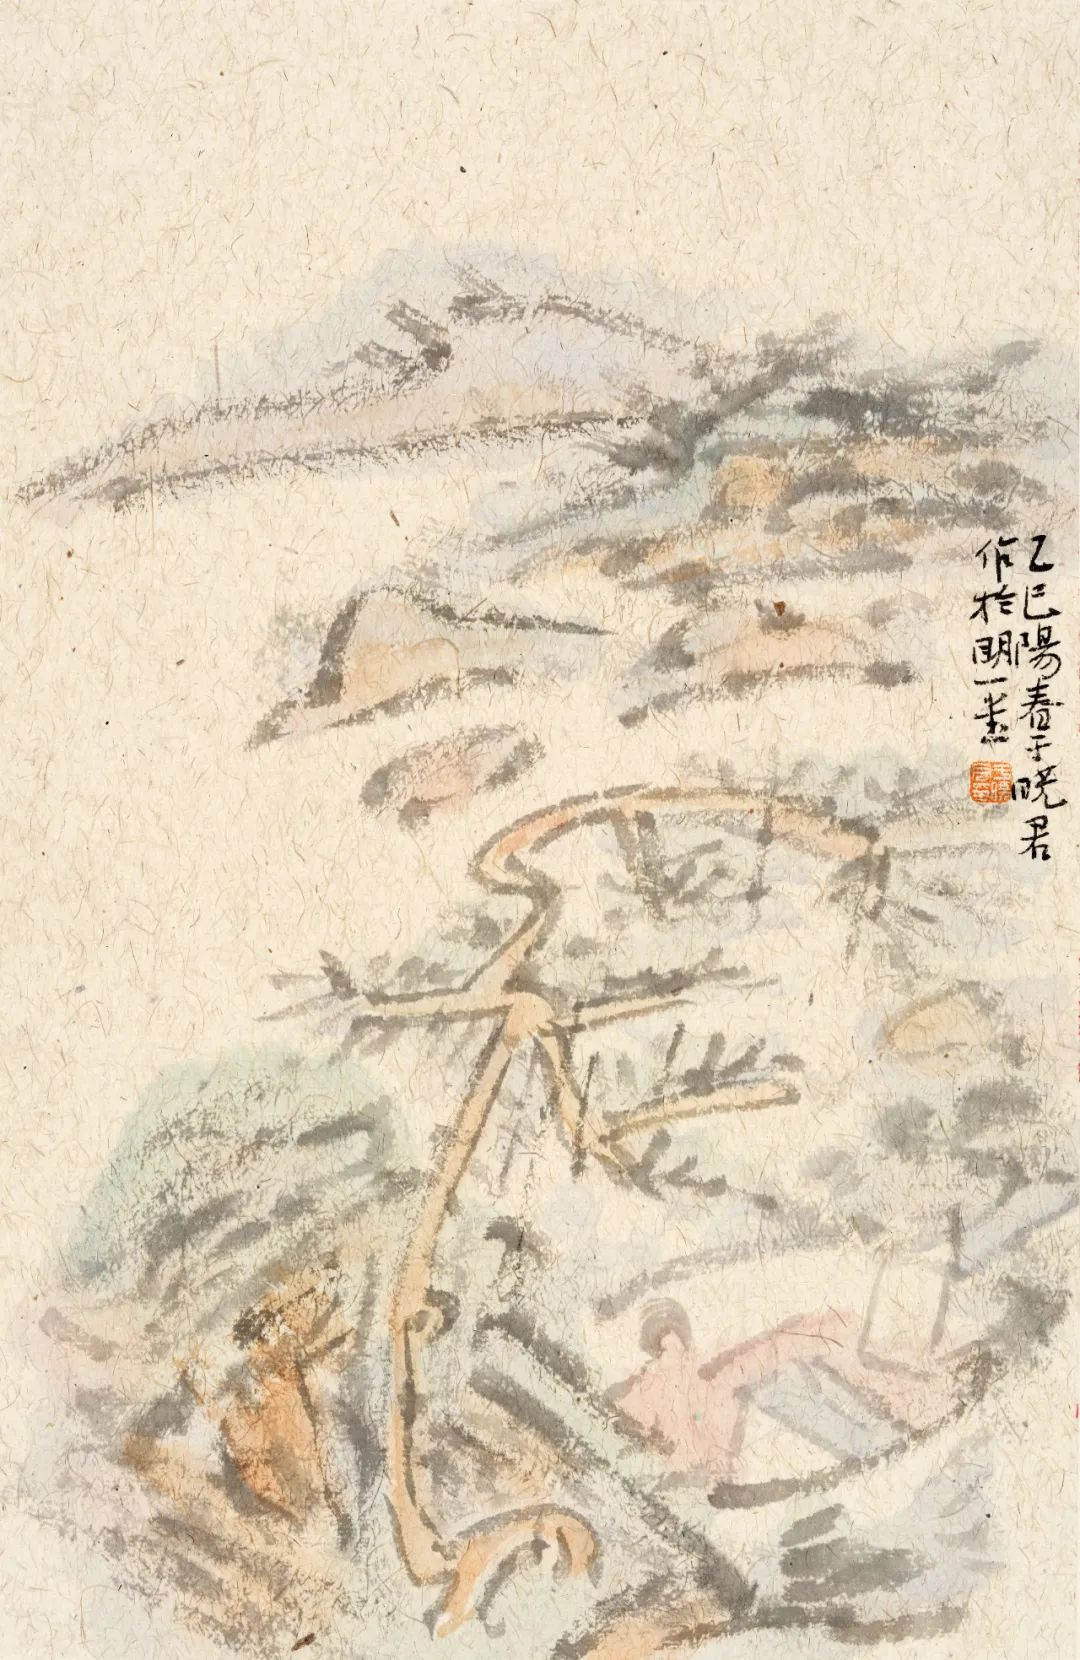 乙巳陽春于晓君
作於明一